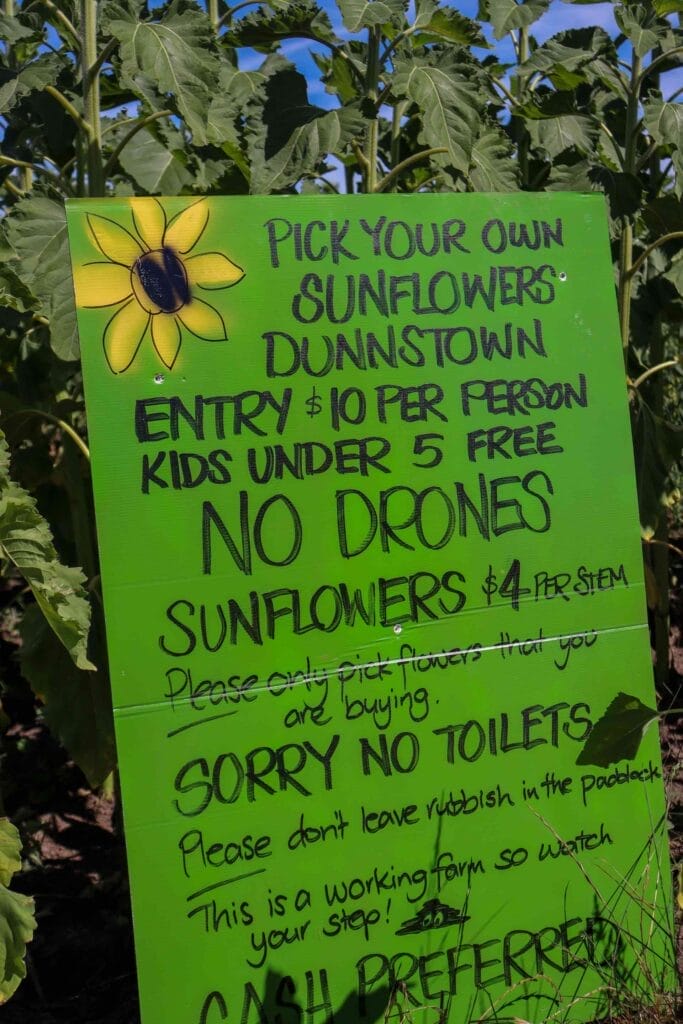 PICK YOUR OWN
SUNFLOWERS
DUNNSTOWN
ENTRY $10 PER PERSON
KIDS UNDER 5 FREE
NO DRONES
SUNFLOWERS $4 PER STEM
Please only pick flowers that you
are buying.
SORRY NO TOILETS
Please don't leave rubbish in the paddock
This is a working farm so watch
your step!
CASH PREFERRED